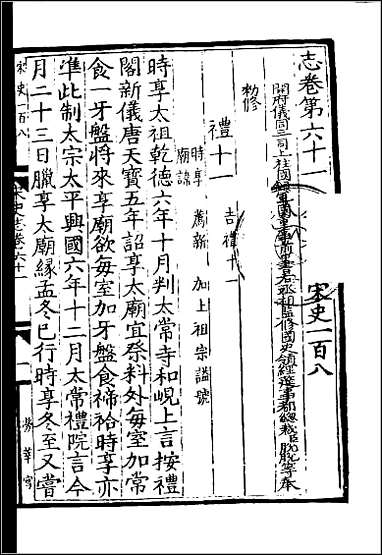 志卷第六十一
宋史一百八
開府儀同三司上柱國錄軍國重事前中書右丞相監修國史領經筵事都總裁臣脫脫等奉
勑修
禮十一
吉禮十一
時享 薦新 加上祖宗謚號
廟諱
時享太祖乾德六年十月判太常寺和峴上言按禮
閣新儀唐天寶五年詔享太廟宜祭料外每室加常
食一牙盤將來享廟欲每室加牙盤食禘祫時享亦
準此制太宗太平興國六年十二月太常禮院言今
月二十三日臘享太廟緣孟冬已行時享冬至又嘗
宋史一百八
宋史志卷六十一
一